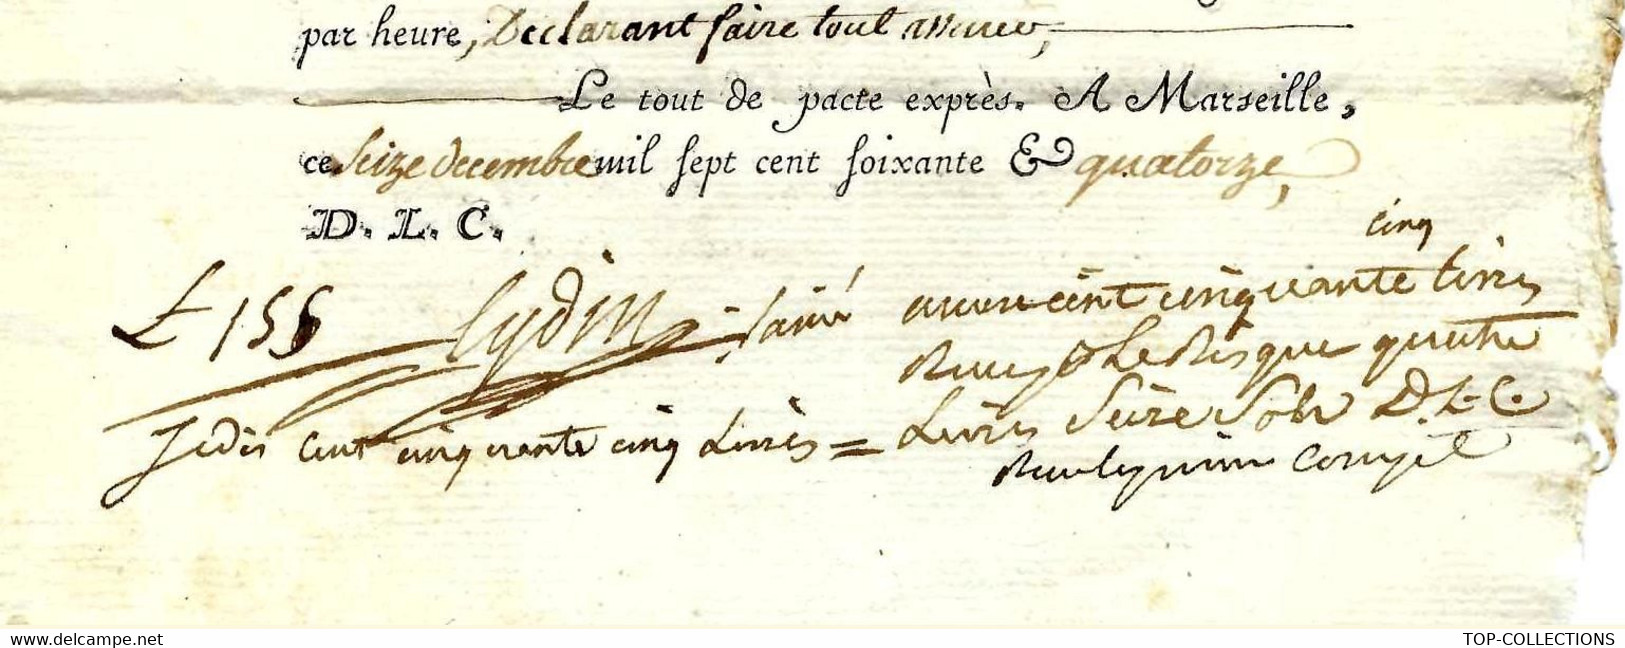 par heure, Declarant faire tout assurer,
Le tout de pacte exprès. A Marseille,
ce seize decembre mil sept cent soixante & quatorze,
D. L. C.
cinq
£ 155 lydin cent cinquante livres
Le Risque quatre
Livres Seize Sols D. L. C.
Je dis cent cinquante cinq Livres =
www.delcampe.net
TOP-COLLECTIONS